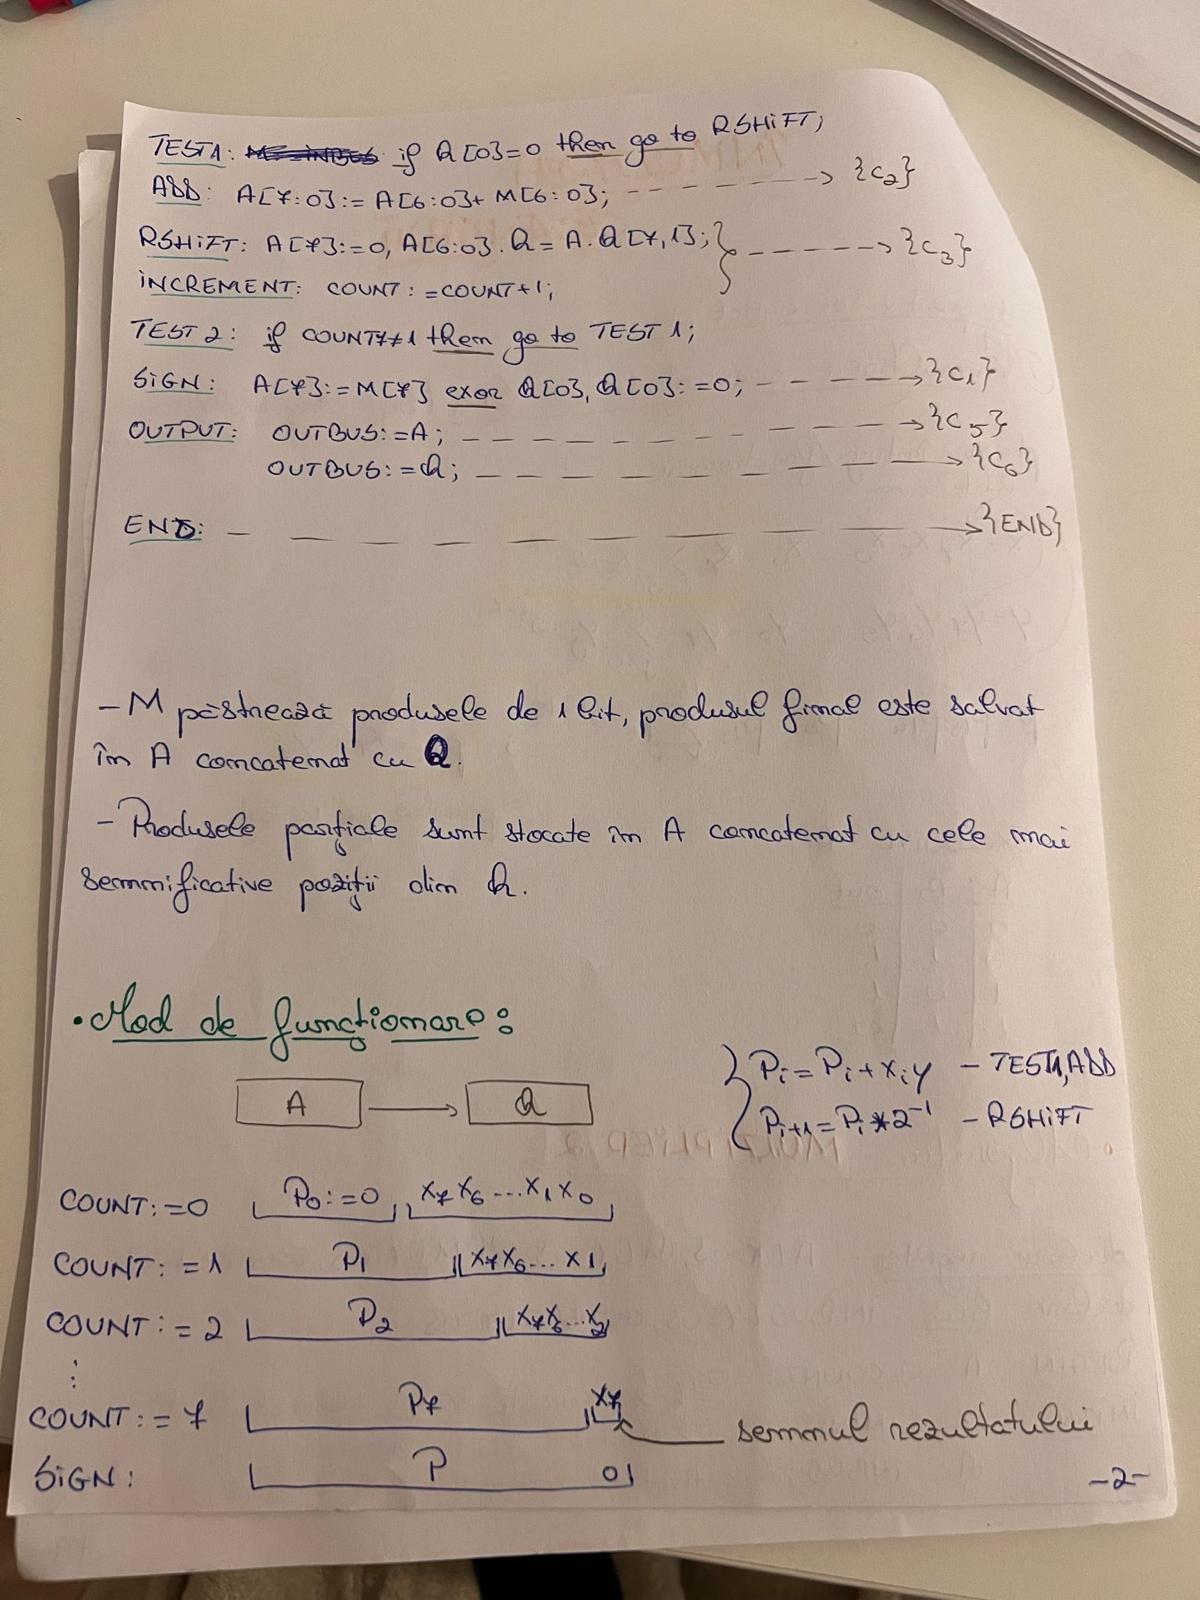 TEST1: if Q[0]=0 then go to RSHiFT;
ADD: A[7:0]:= A[6:0]+ M[6:0]; → {C2}
RSHiFT: A[7]:=0, A[6:0].Q = A.Q[7,1]; → {C3}
iNCREMENT: COUNT:=COUNT+1;
TEST 2: if COUNT7≠1 then go to TEST 1;
SiGN: A[7]:=M[7] exor Q[0], Q[0]:=0; → {C1}
OUTPUT: OUTBUS:=A; → {C5}
OUTBUS:=Q; → {C6}
END: → {END}
- M păstrează produsele de 1 bit, produsul final este salvat
în A concatenat cu Q.
- Produsele parțiale sunt stocate în A concatenat cu cele mai
semnificative poziții din Q.
• Mod de funcționare:
A → Q
Pi = Pi + xiy - TEST1,ADD
Pi+1 = Pi * 2^-1 - RSHiFT
COUNT:=0 P0:=0 x7 x6 ... x1 x0
COUNT:=1 P1 x7x6... x1
COUNT:=2 P2 x7x6...x2
⋮
COUNT:=7 P7 x7 semnul rezultatului
SiGN: P 0
-2-